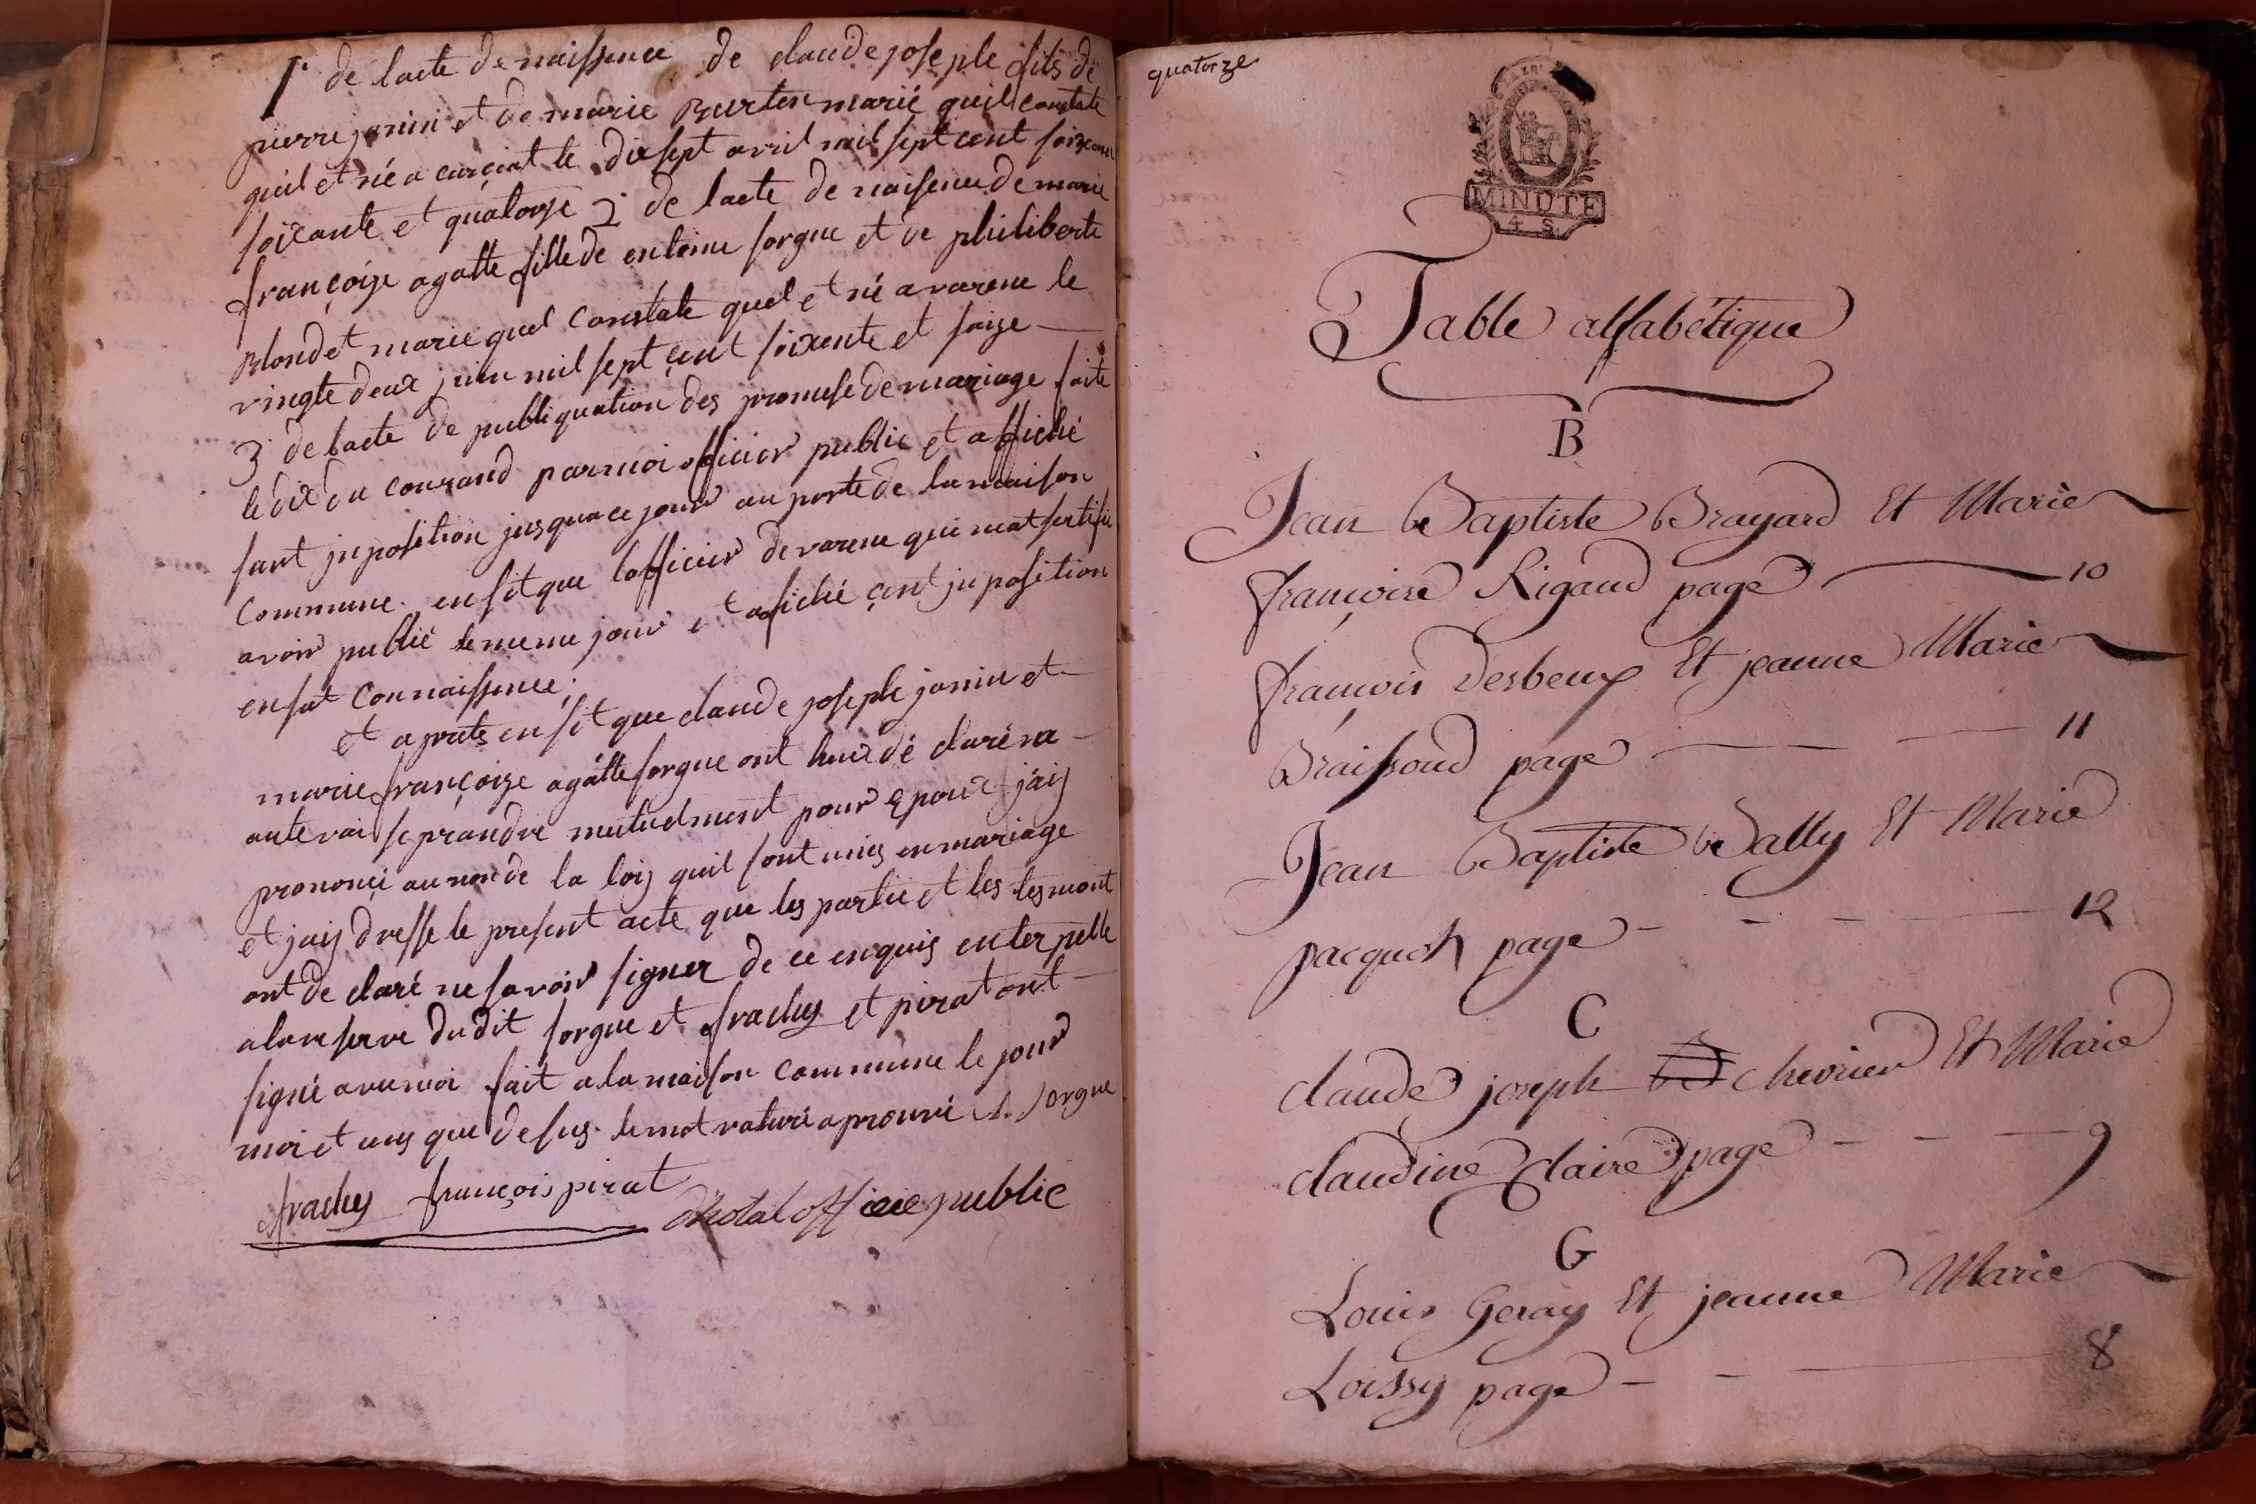 1° de lacte de naissence de claude joseple fils de
pierre janin et de marie Burten marié quil constate
quil et né a curciat le dixsept avril mil sept cent
soixante et quatorze 2° de lacte de naissence de marie
françoize agatte fille de enteme sorgue et de philiberte
Blondet marie quel constate quel et né a varene le
vingte deux juin mil sept cent soixente et saize
3° de lacte de publiquation des promesse de mariage faite
le dix du courand par moi officier public et affiché
sant jnposition jusqua ce jour au porte de la maison
commune. ensit que lofficier de varene qui mat sertifié
avoir publié le meme jour et afiché cent jnposition
en sat connaissence;
et aprets ensit que claude joseple janin et
marie françoize agatte sorgue ont
se prandre mutuelment pour epoux jaij
prononcé au nom de la loij quil sont unis en mariage
et jaij dresse le present acte que les partie et les tesmont
ont de claré ne savoir signer de ce enquis enterpelle
a la reserve du dit sorgue et frachey et pirat ont
signé avec moi fait a la maison commune le jour
moi et ans que desus. le mot raturé aprouvé Sorgue
frachey françois pirat
Chotal officie public
quatorze
MINUTE
4 S
Table alfabétique
B
Jean Baptiste Brayard Et Marie
françoise Rigaud page 10
françois Desbeux Et jeanne Marie
Braissoud page 11
Jean Baptiste Bally Et Marie
pacquet page 12
C
claude joseph chevrier Et Marie
claudine claire page 9
G
Louis Geray Et jeanne Marie
Loissy page 8